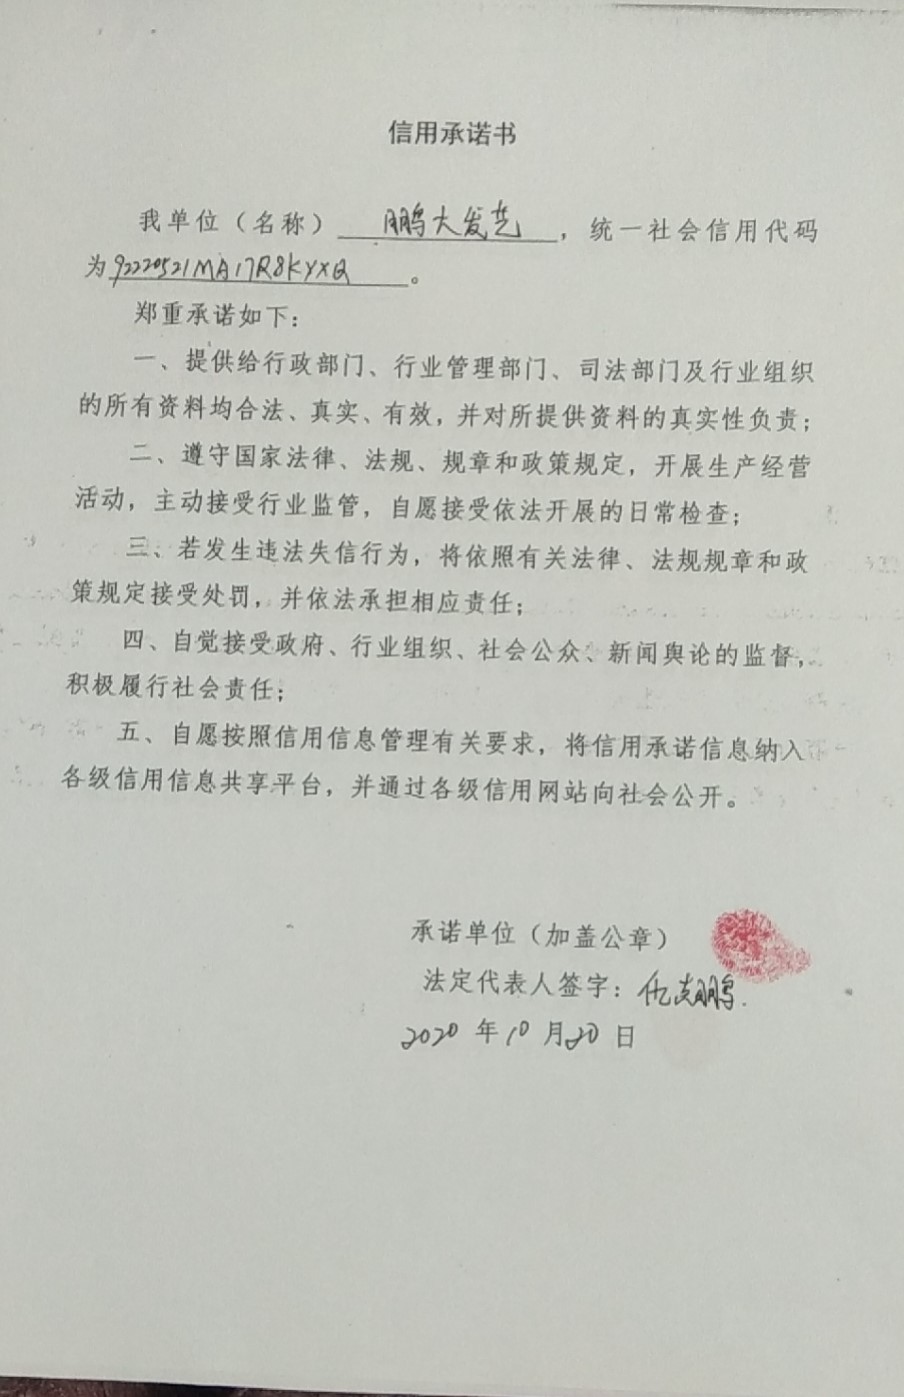 信用承诺书
我单位（名称） 鹏大发艺 ，统一社会信用代码
为92220521MA17R8KYXQ 。
郑重承诺如下：
一、提供给行政部门、行业管理部门、司法部门及行业组织
的所有资料均合法、真实、有效，并对所提供资料的真实性负责；
二、遵守国家法律、法规、规章和政策规定，开展生产经营
活动，主动接受行业监管，自愿接受依法开展的日常检查；
三、若发生违法失信行为，将依照有关法律、法规规章和政
策规定接受处罚，并依法承担相应责任；
四、自觉接受政府、行业组织、社会公众、新闻舆论的监督，
积极履行社会责任；
五、自愿按照信用信息管理有关要求，将信用承诺信息纳入
各级信用信息共享平台，并通过各级信用网站向社会公开。
承诺单位（加盖公章）
法定代表人签字：
2020 年 10 月 20 日